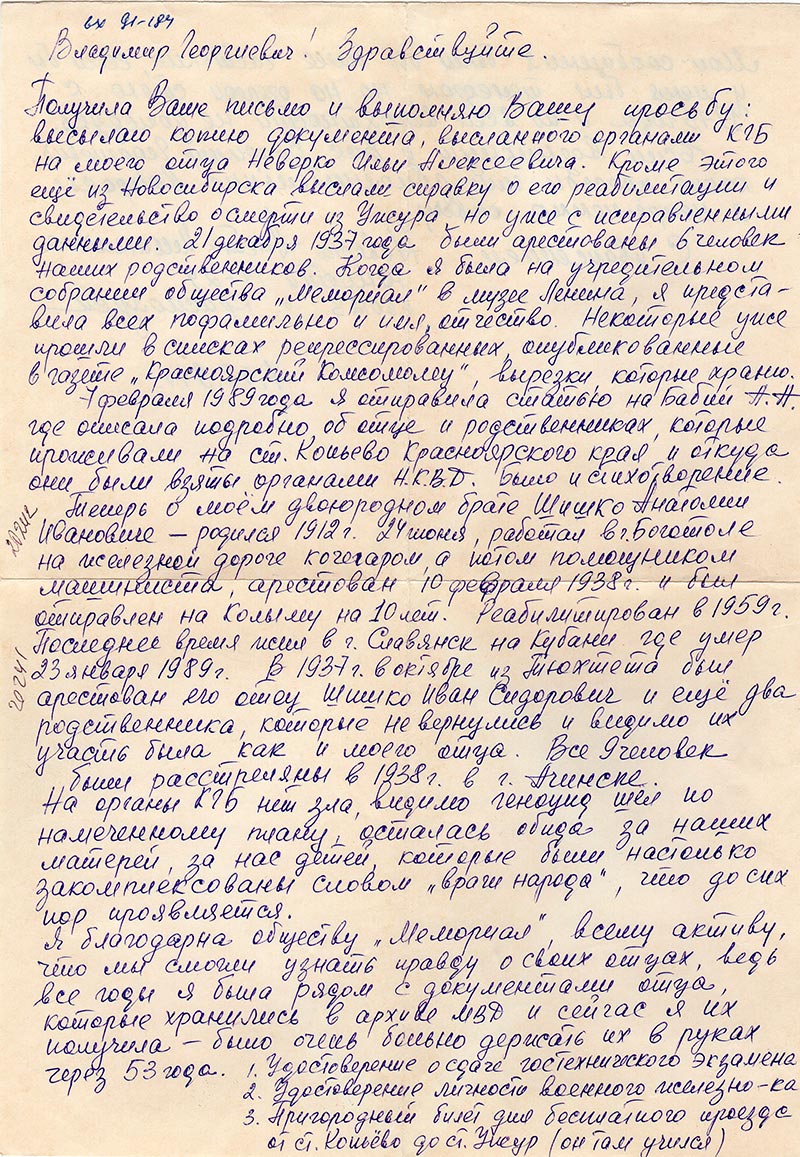 вх 91-184
Владимир Георгиевич! Здравствуйте.
Получила Ваше письмо и выполняю Вашу просьбу:
высылаю копию документа, высланного органами КГБ
на моего отца Неверко Ильи Алексеевича. Кроме этого
ещё из Новосибирска выслали справку о его реабилитации и
свидетельство о смерти из Ужура но уже с исправленными
данными. 21 декабря 1937 года были арестованы 6 человек
наших родственников. Когда я была на учредительном
собрании общества „Мемориал" в музее Ленина, я предста-
вила всех пофамильно и имя, отчество. Некоторые уже
прошли в списках репрессированных, опубликованные
в газете „Красноярский Комсомолец", вырезки, которые храню.
7 февраля 1989 года я отправила статью на Бабий А.А.
где описала подробно об отце и родственниках, которые
проживали на ст. Копьево Красноярского края, и откуда
они были взяты органами Н.К.В.Д. Было и стихотворение.
Теперь о моём двоюродном брате Шишко Анатолии
Ивановиче — родился 1912 г. 24 июня, работал в г. Боготоле
на железной дороге кочегаром, а потом помощником
машиниста, арестован 10 февраля 1938 г. и был
отправлен на Колыму на 10 лет. Реабилитирован в 1959 г.
Последнее время жил в г. Славянск на Кубани где умер
23 января 1989 г. В 1937 г. в октябре из Тюхтета был
арестован его отец Шишко Иван Сидорович и ещё два
родственника, которые не вернулись и видимо их
участь была как и моего отца. Все 9 человек
были расстреляны в 1938 г. в г. Ачинске.
На органы КГБ нет зла, видимо геноцид шёл по
намеченному плану, осталась обида за наших
матерей, за нас детей, которые были настолько
закомплексованы словом „враги народа", что до сих
пор проявляется.
Я благодарна обществу „Мемориал", всему активу,
что мы смогли узнать правду о своих отцах, ведь
все годы я была рядом с документами отца,
которые хранились в архиве МВД и сейчас я их
получила — было очень больно держать их в руках
через 53 года. 1. Удостоверение о сдаче гостехнического экзамена
2. Удостоверение личности военного железно-ка
3. Пригородный билет для бесплатного проезда
от ст. Копьёво до ст. Ужур (он там учился)